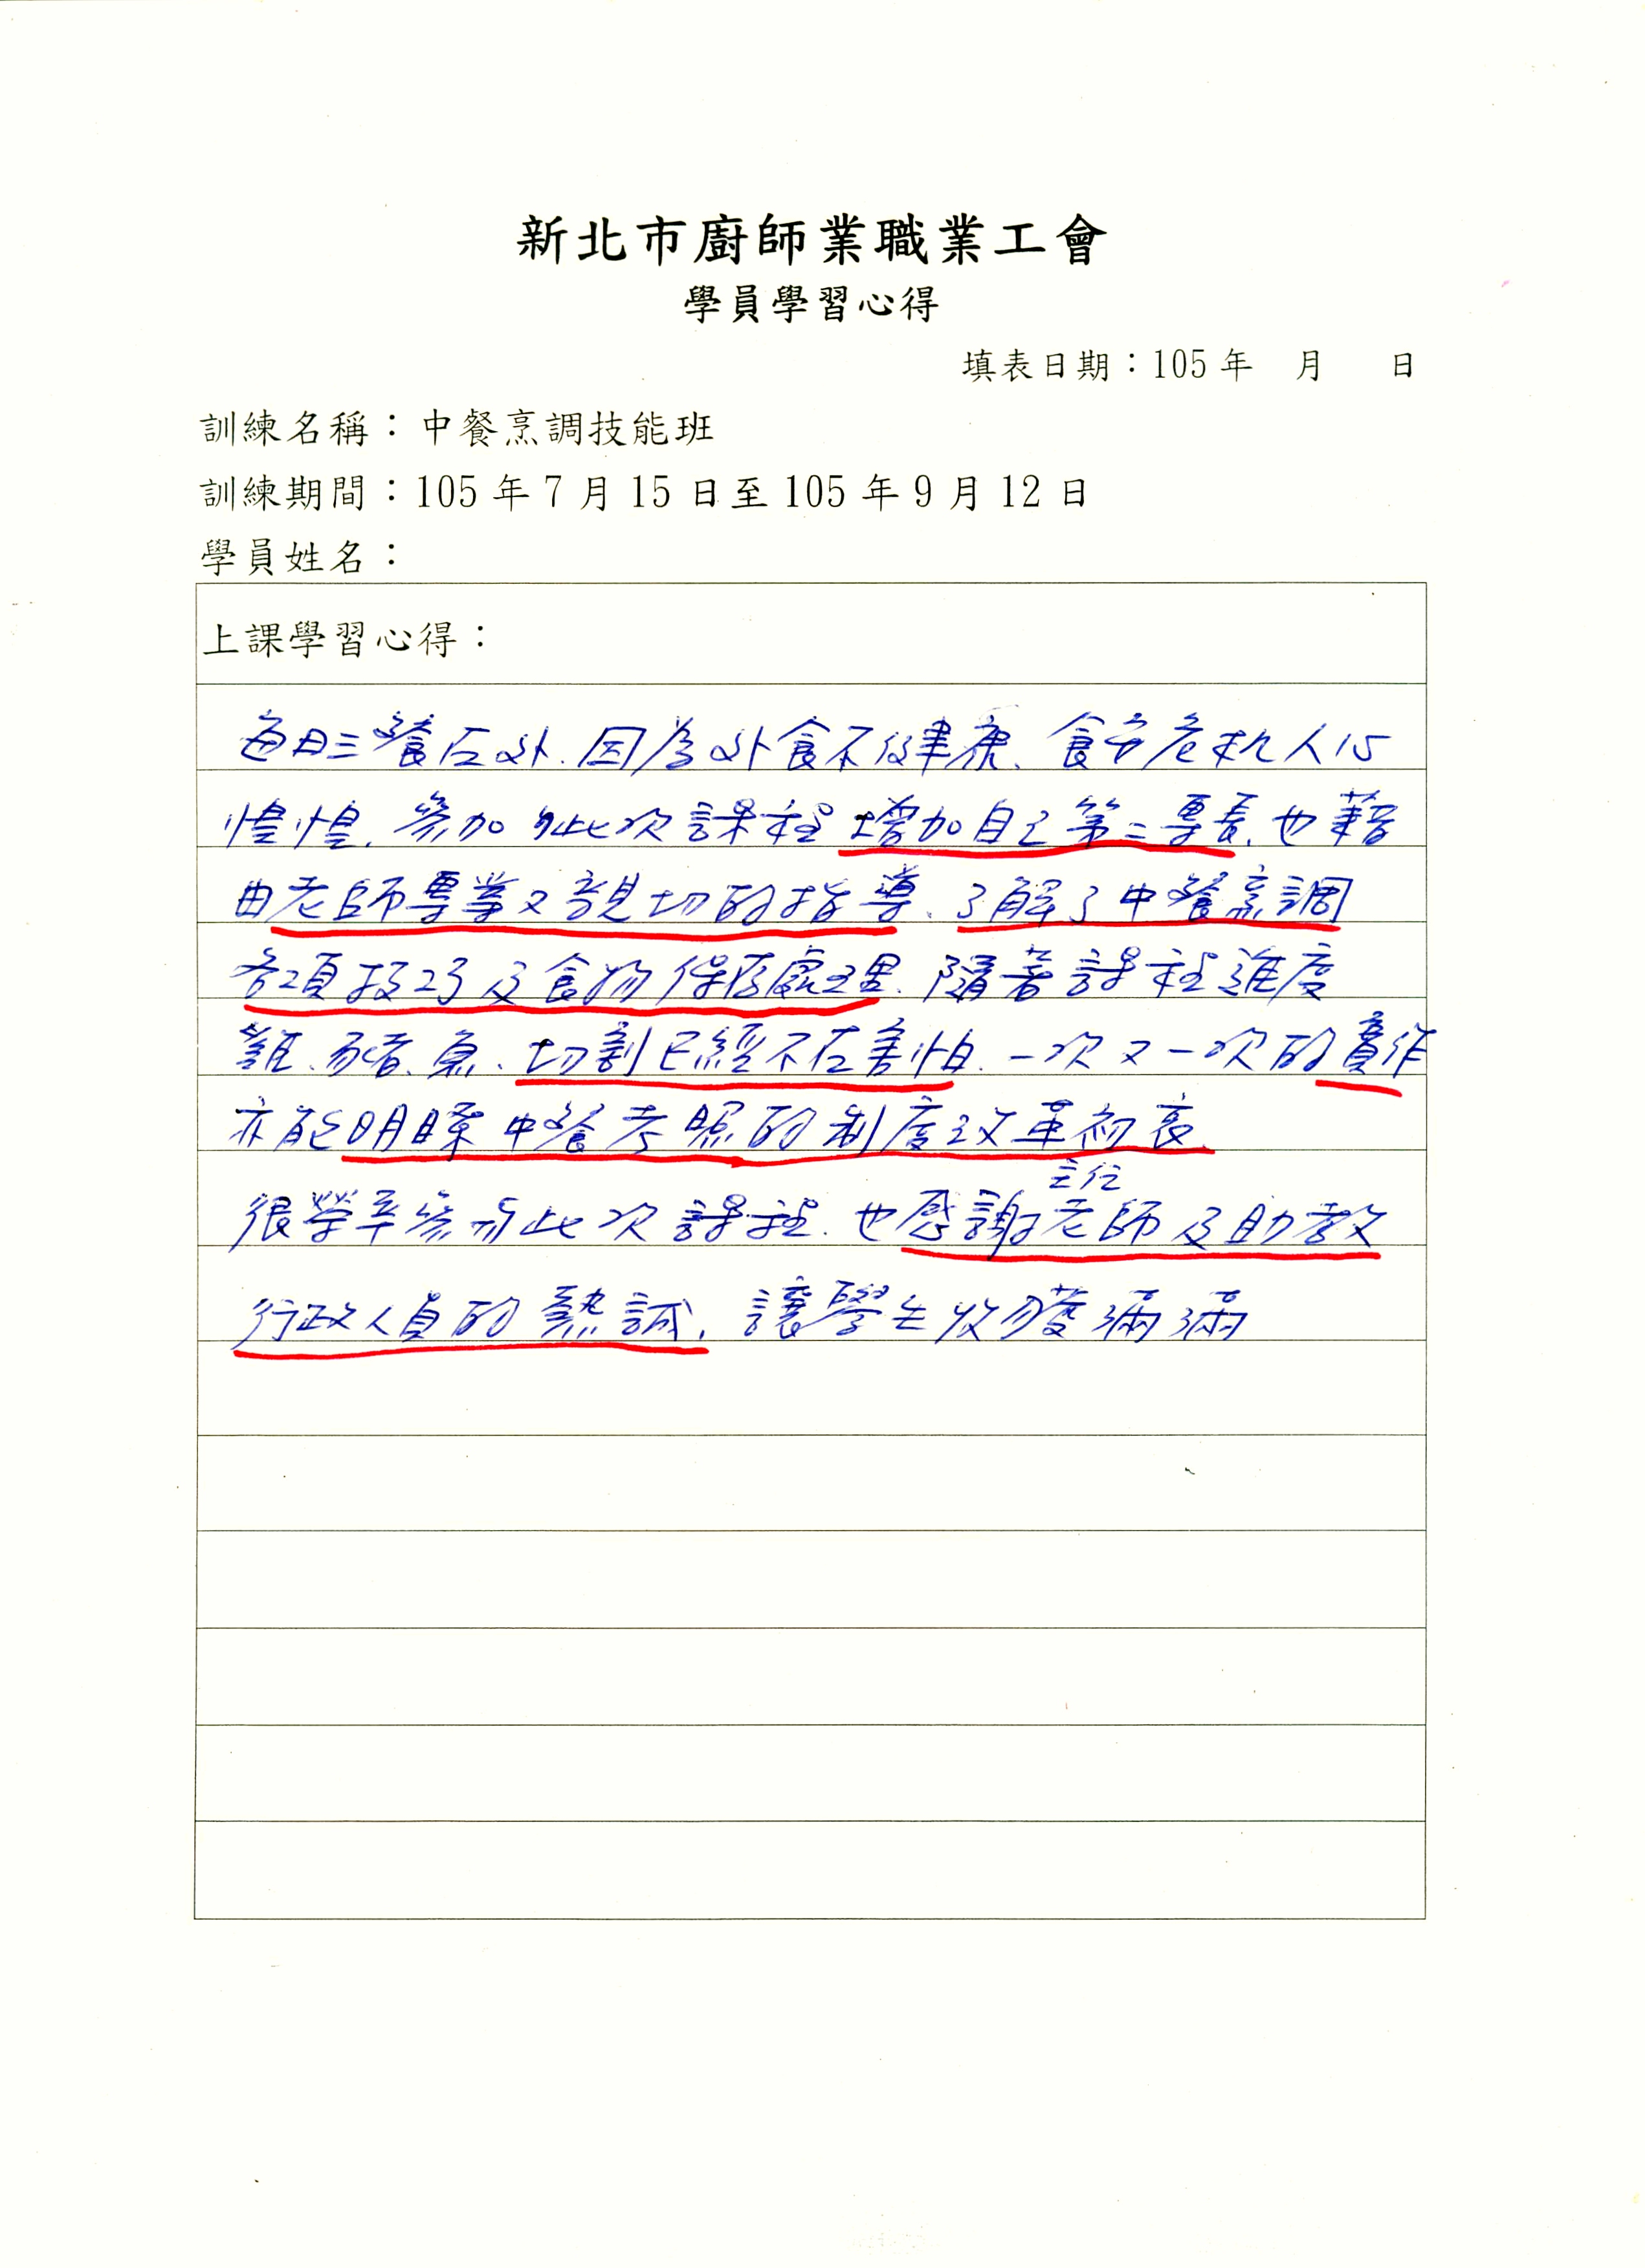 新北市廚師業職業工會
學員學習心得
填表日期：105年 月 日
訓練名稱：中餐烹調技能班
訓練期間：105年7月15日至105年9月12日
學員姓名：
上課學習心得：
每日三餐在外.因為外食不健康、食安危机人心
惶惶.參加此次課程增加自己第二專長.也藉
由老師專業又親切的指導、了解了中餐烹調
各項技巧及食物保存處理.隨著課程進度
雞、豬、魚、切割已經不在害怕.一次又一次的實作
亦能明瞭中餐考照的制度改革初衷.
主任
很榮幸參與此次課程.也感謝老師及助教
行政人員的熱誠.讓學生收穫滿滿